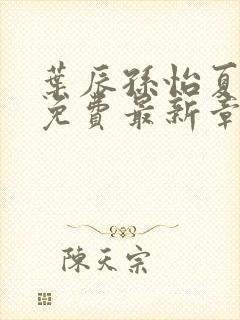 葉辰孫怡夏
免費最新章
陳天宗